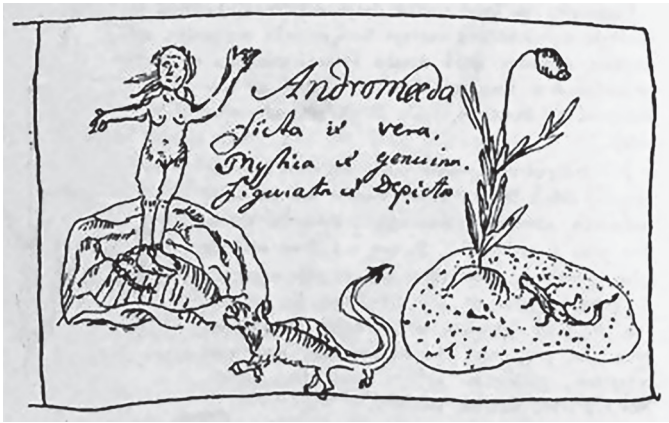 Andromeda
ficta et vera,
mystica et genuina,
figurata et Depicta.